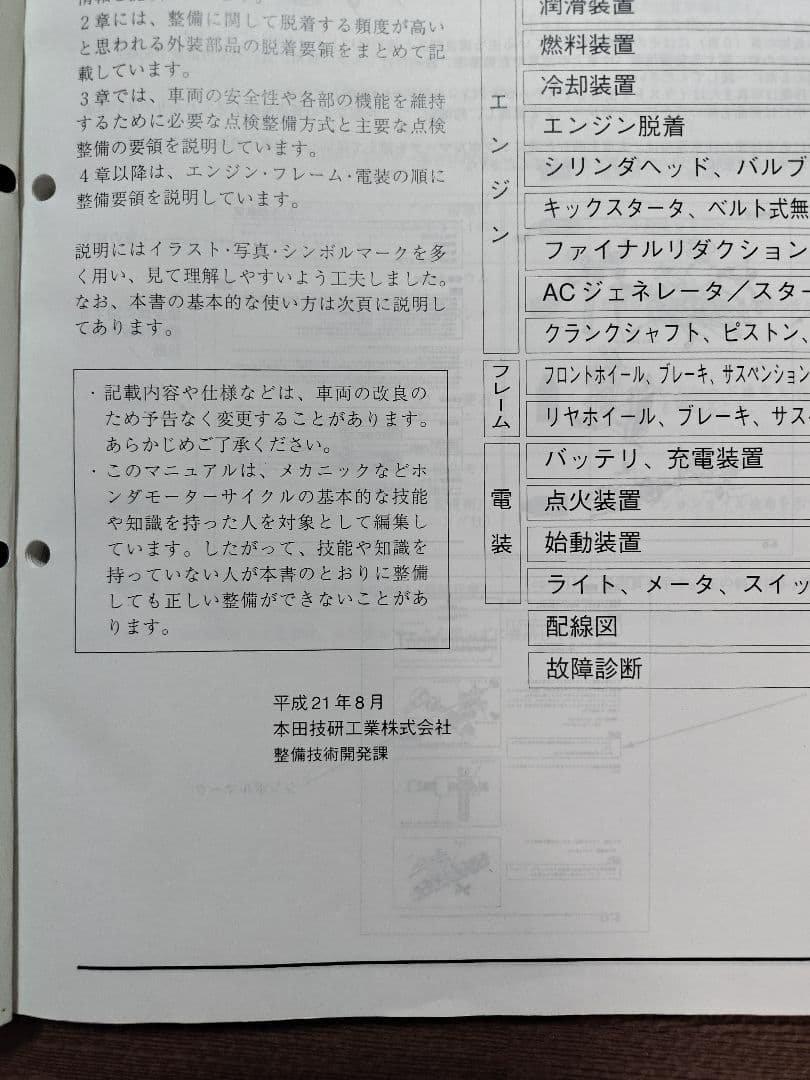 2章には、整備に関して脱着する頻度が高い
と思われる外装部品の脱着要領をまとめて記
載しています。
3章では、車両の安全性や各部の機能を維持
するために必要な点検整備方式と主要な点検
整備の要領を説明しています。
4章以降は、エンジン・フレーム・電装の順に
整備要領を説明しています。
説明にはイラスト・写真・シンボルマークを多
く用い、見て理解しやすいよう工夫しました。
なお、本書の基本的な使い方は次頁に説明し
てあります。
・記載内容や仕様などは、車両の改良の
ため予告なく変更することがあります。
あらかじめご了承ください。
・このマニュアルは、メカニックなどホ
ンダモーターサイクルの基本的な技能
や知識を持った人を対象として編集し
ています。したがって、技能や知識を
持っていない人が本書のとおりに整備
しても正しい整備ができないことがあ
ります。
平成21年8月
本田技研工業株式会社
整備技術開発課
エンジン
潤滑装置
燃料装置
冷却装置
エンジン脱着
シリンダヘッド、バルブ
キックスタータ、ベルト式無
ファイナルリダクション
ACジェネレータ/スター
クランクシャフト、ピストン、
フレーム
フロントホイール、ブレーキ、サスペンション
リヤホイール、ブレーキ、サス
電装
バッテリ、充電装置
点火装置
始動装置
ライト、メータ、スイッ
配線図
故障診断